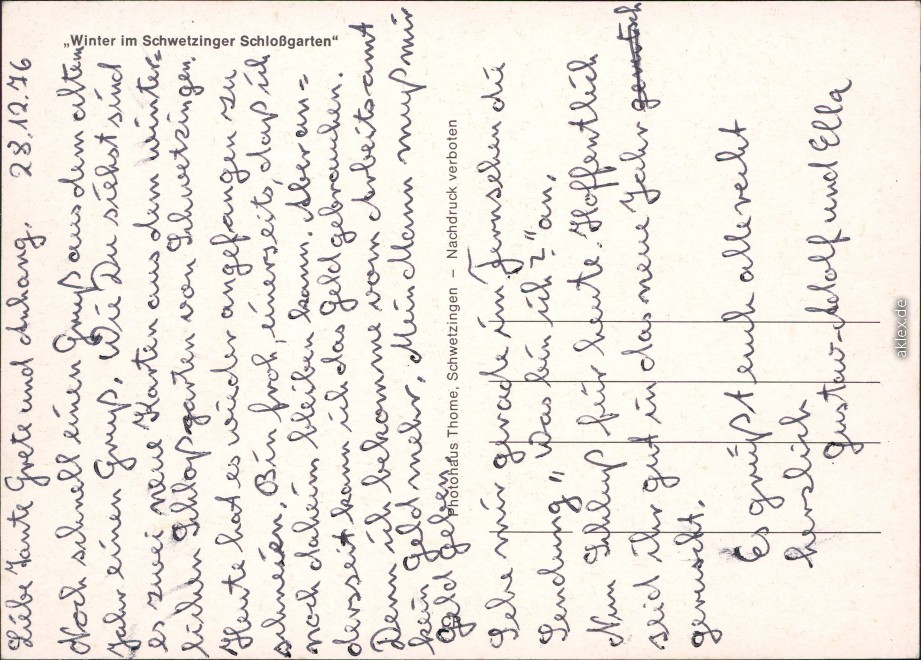 „Winter im Schwetzinger Schloßgarten“
Liebe Tante Grete und Anhang. 28.12.76
Noch schnell einen Gruß aus dem alten
Jahr einen Gruß. Wie Du siehst sind
es zwei neue Karten aus dem winter=
lichen Schloßgarten von Schwetzingen.
Heute hat es wieder angefangen zu
schneien. Bin froh, einerseits, daß ich
noch daheim bleiben kann. Aber an=
derseit kann ich das Geld gebrauchen.
Denn ich bekomme vom Arbeitsamt
kein Geld mehr. Mein Mann muß mir
Geld geben.
Photohaus Thome, Schwetzingen – Nachdruck verboten
Sehe mir gerade im Fernsehen die
Sendung „Was bin ich?“ an.
Nun Schluß für heute. Hoffentlich
seid ihr gut in das neue Jahr
gerutscht.
Es grüßt euch alle recht
herzlich
Gustav-Adolf und Ella
aklex.de